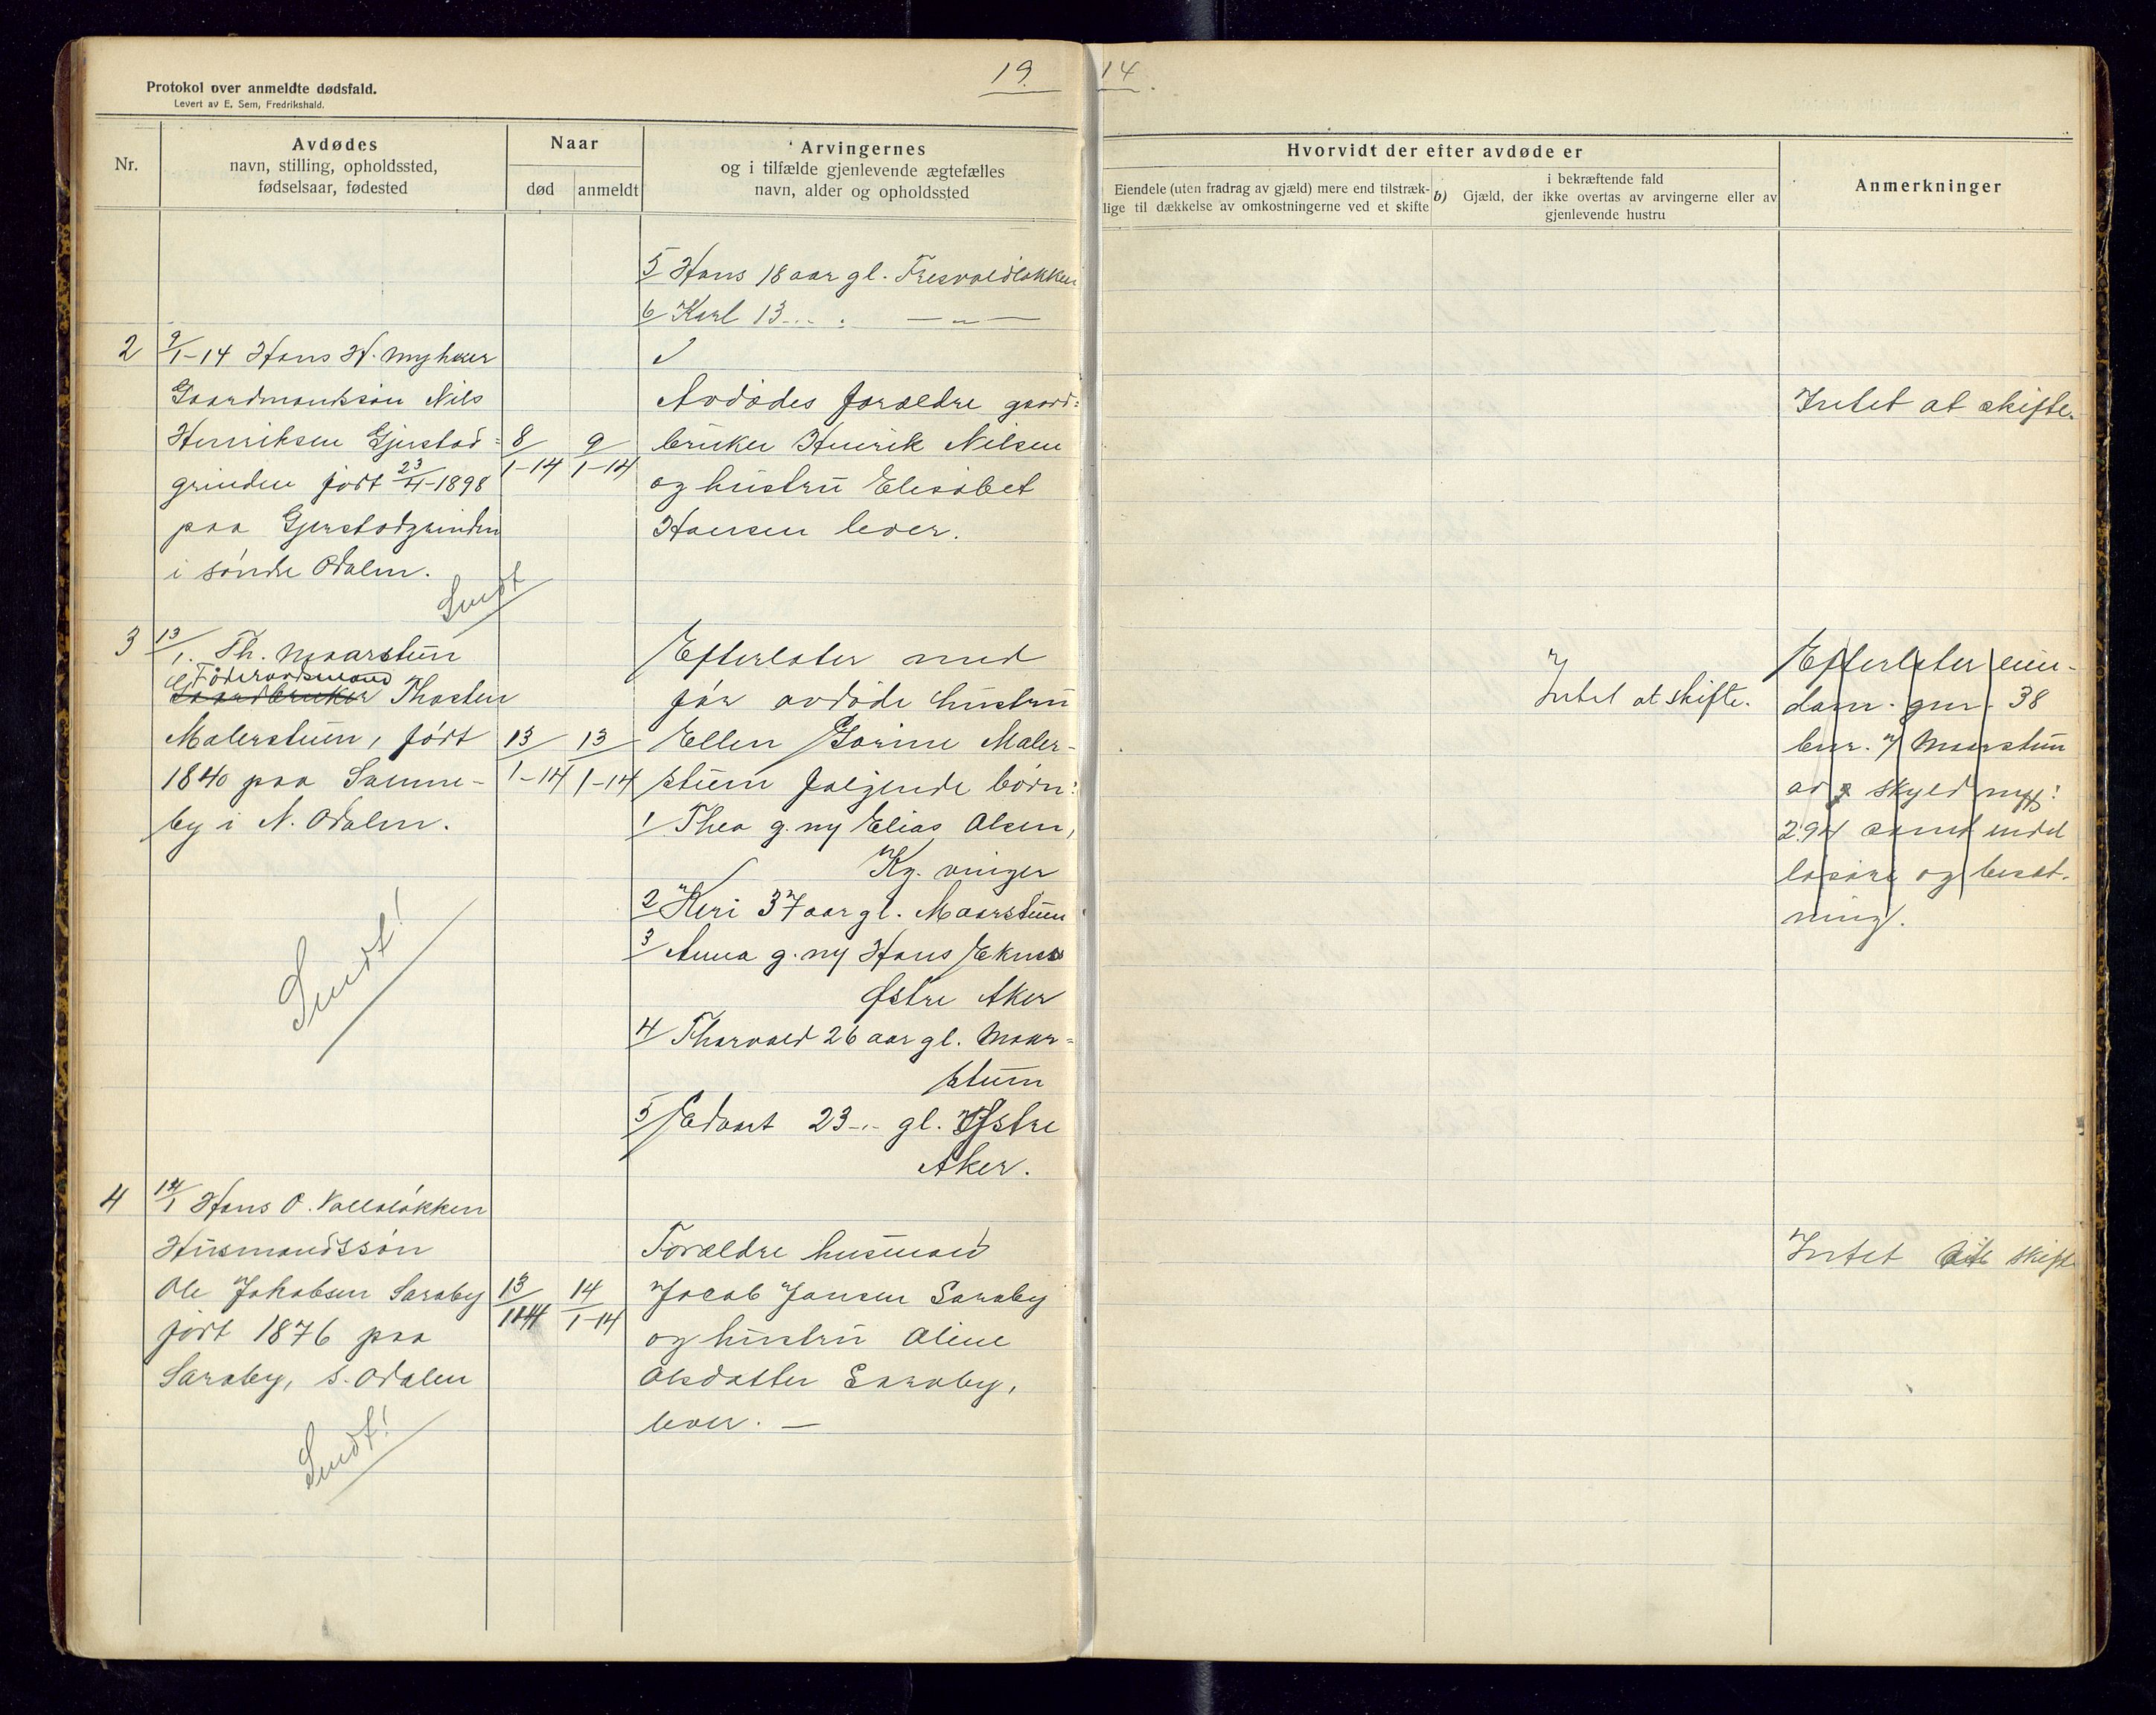 19 14.
Protokol over anmeldte dødsfald.
Levert av E. Sem, Fredrikshald.
Nr.
Avdødes
navn, stilling, opholdssted,
fødselsaar, fødested
Naar
død anmeldt
Arvingernes
og i tilfælde gjenlevende ægtefælles
navn, alder og opholdssted
Hvorvidt der efter avdøde er
Eiendele (uten fradrag av gjæld) mere end tilstræk-
lige til dækkelse av omkostningerne ved et skifte
b) i bekræftende fald
Gjæld, der ikke overtas av arvingerne eller av
gjenlevende hustru
Anmerkninger
5/ Hans 18 aar gl.
6/ Karl 13 -"- -"-
2
9/1-14 Hans H. Myhrer
Gaardmandssøn Nils
Henriksen Gjerstad=
grinden født 23/11-1898
paa Gjerstadgrinden
i søndre Odalen.
Sendt
8/1-14
9/1-14
Avdødes forældre gaard=
bruker Henrik Nilsen
og hustru Elisabet
Hansen lever.
Intet at skifte.
3
13/1. Th. Maarstun
Föderaadsmand
Gaardbruker Thosten
Malerstuen, født
1840 paa Sanne-
by i N. Odalen.
Sendt!
13/1-14
13/1-14
Efterlater med
før avdøde hustru
Ellen Karine Maler-
stuen følgende børn:
1/ Thea g. m/ Elias Olsen,
Kg. vinger
2/ Keri 37 aar gl. Maarstuen
3/ Anna g. m/ Hans Eknes
Østre Aker
4/ Thorvald 26 aar gl. Maar=
stuen
5/ Edvart 23 -"- gl. Østre
Aker.
Intet at skifte.
Efterlater eien-
dom. gnr. 38
bnr. 7 Maarstun
av skyld
2.94 samt endel
løsøre og besæt-
ning.
4
14/1 Hans O. Vollaløkken
Husmandssøn
Ole Jakobsen Saraby
født 1876 paa
Saraby, S. Odalen
Sendt!
13/1-14
14/1-14
Forældre husmand
Jacob Jansen Saraby
og hustru Oline
Olsdatter Saraby,
lever. —
Intet at skifte